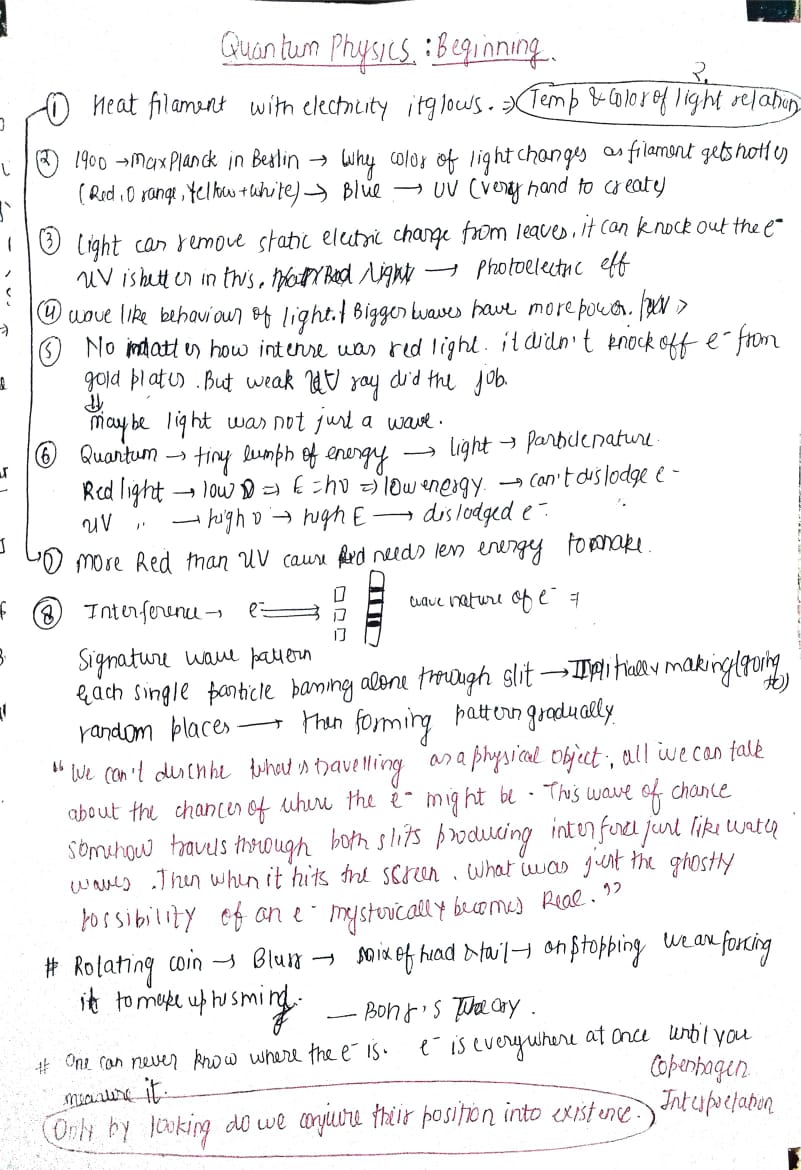 Quantum Physics : Beginning.
① Heat filament with electricity it glows. ⇒ Temp & Color of light relation
?
② 1900 → Max Planck in Berlin → Why color of light changes as filament gets hotter
(Red, Orange, Yellow + white) → Blue → UV (very hard to create)
③ Light can remove static electric charge from leaves, it can knock out the e⁻
UV is better in this, → Photoelectric eff
④ wave like behaviour of light. Bigger waves have more power.
⑤ No matter how intense was red light. it didn't knock off e⁻ from
gold plates. But weak UV ray did the job.
⇓
maybe light was not just a wave.
⑥ Quantum → tiny lumph of energy → light → Particle nature.
Red light → low ν ⇒ E = hν ⇒ low energy. → can't dislodge e⁻
UV ,, → high ν → high E → dislodged e⁻.
⑦ more Red than UV cause Red needs less energy to make.
⑧ Interference → e⁻ wave nature of e⁻
Signature wave pattern
Each single particle passing alone through slit → Initially making (going to)
random places → then forming pattern gradually
"We can't describe what's travelling as a physical object, all we can talk
about the chances of where the e⁻ might be. This wave of chance
somehow travels through both slits producing interference just like water
waves. Then when it hits the screen. What was just the ghostly
possibility of an e⁻ mysterically becomes Real."
# Rotating coin → Blurr → mix of head & tail → on stopping we are forcing
it to make up its mind.
— Bohr's Theory.
# One can never know where the e⁻ is. e⁻ is everywhere at once until you
measure it.
Copenhagen
Interpretation
Only by looking do we conjure their position into existence.